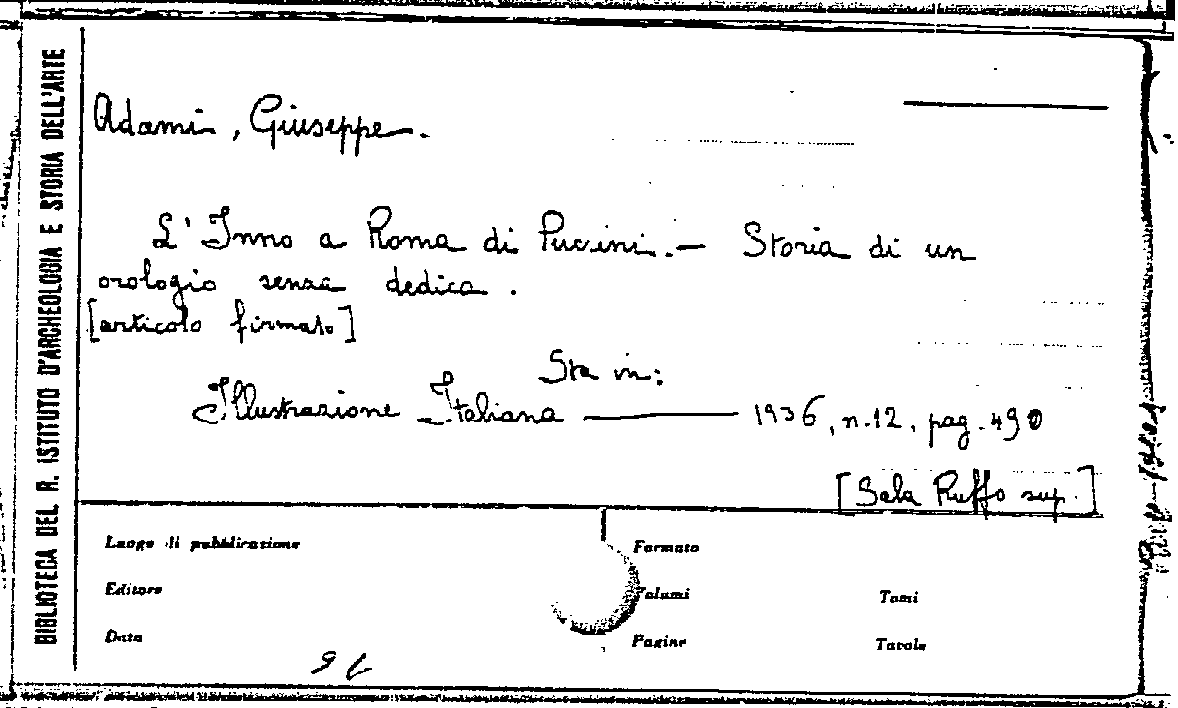 BIBLIOTECA DEL R. ISTITUTO D'ARCHEOLOGIA E STORIA DELL'ARTE
Adami, Giuseppe.
L'Inno a Roma di Puccini. — Storia di un
orologio senza dedica.
[articolo firmato]
Sta in:
Illustrazione Italiana — 1936, n. 12, pag. 490
[Sala Ruffo sup.]
Luogo di pubblicazione
Formato
Editore
Volumi
Tomi
Data
Pagine
Tavole